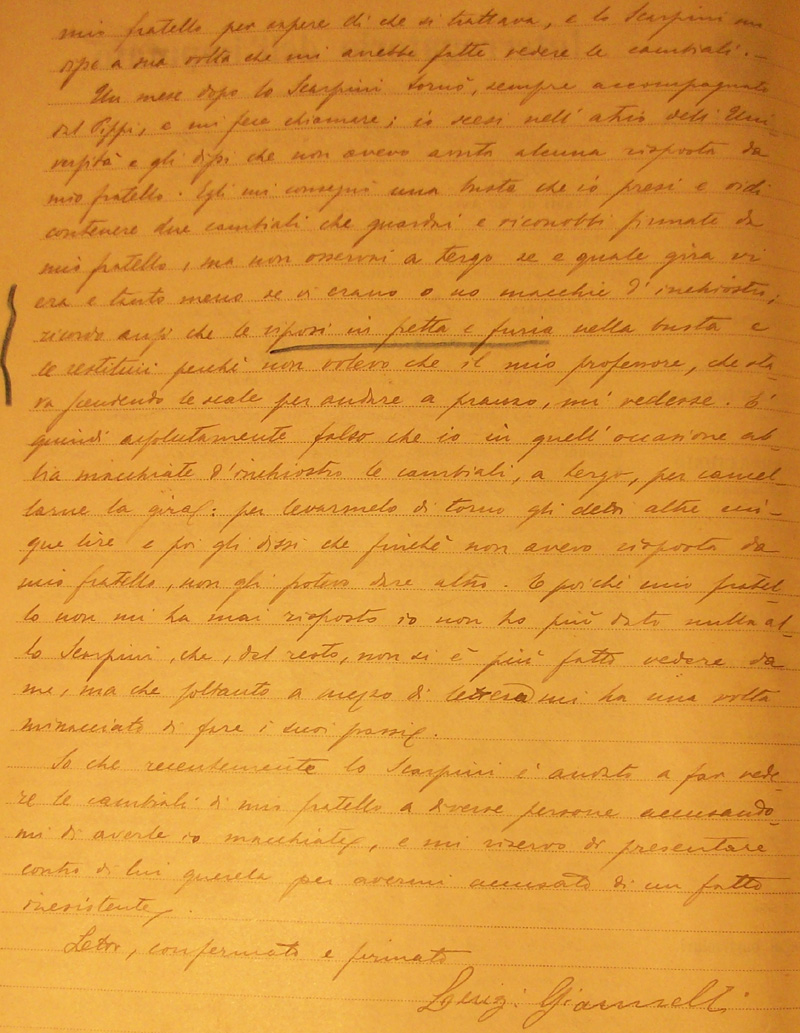 mio fratello per sapere di che si trattava, e lo Scarpini mi
disse a sua volta che mi avrebbe fatte vedere le cambiali. -
Un mese dopo lo Scarpini tornò, sempre accompagnato
dal Pippi, e mi fece chiamare; io scesi nell'atrio dell'Uni-
versità e gli dissi che non avevo avuta alcuna risposta da
mio fratello. Egli mi consegnò una busta che io presi e vidi
contenere due cambiali che guardai e riconobbi firmate da
mio fratello, ma non osservai a tergo se e quale gira vi
era e tanto meno se vi erano o no macchie d'inchiostro;
ricordo anzi che le riposi in fretta e furia nella busta e
le restituii perchè non volevo che il mio professore, che sta-
va scendendo le scale per andare a pranzo, mi vedesse. E'
quindi assolutamente falso che io in quell'occasione ab-
bia macchiate d'inchiostro le cambiali, a tergo, per cancel-
larne la gira: per levarmelo di torno gli detti altre cin-
que lire e poi gli dissi che finchè non avevo risposta da
mio fratello, non gli potevo dare altro. E poichè mio fratel-
lo non mi ha mai risposto io non ho più dato nulla al-
lo Scarpini, che, del resto, non si è più fatto vedere da
me, ma che soltanto a mezzo di lettera mi ha una volta
minacciato di fare i suoi passi.
So che recentemente lo Scarpini è andato a far vede-
re le cambiali di mio fratello a diverse persone accusando-
mi di averle io macchiate, e mi riservo di presentare
contro di lui querela per avermi accusato di un fatto
inesistente.
Letto, confermato e firmato
Luigi Giannelli